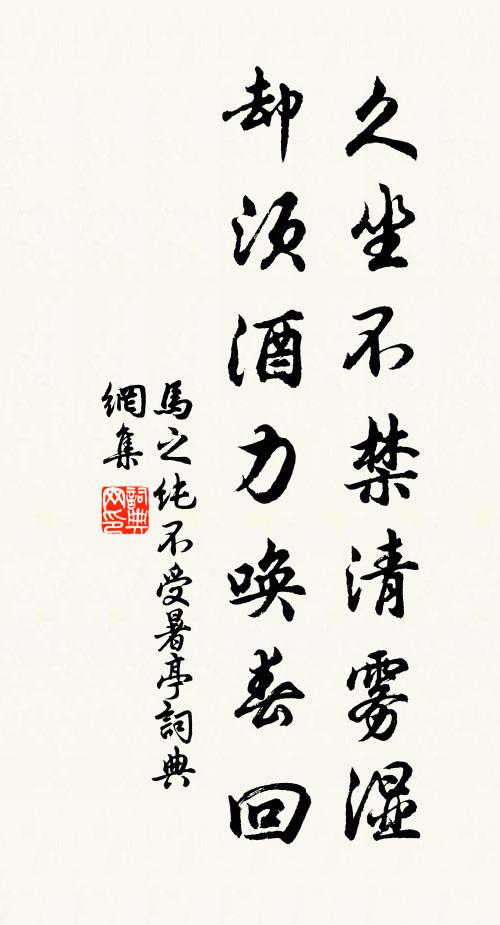 久坐不禁清雾湿
却须酒力唤春回
馬之純不受暑亭詞典
網集
詞典
网印